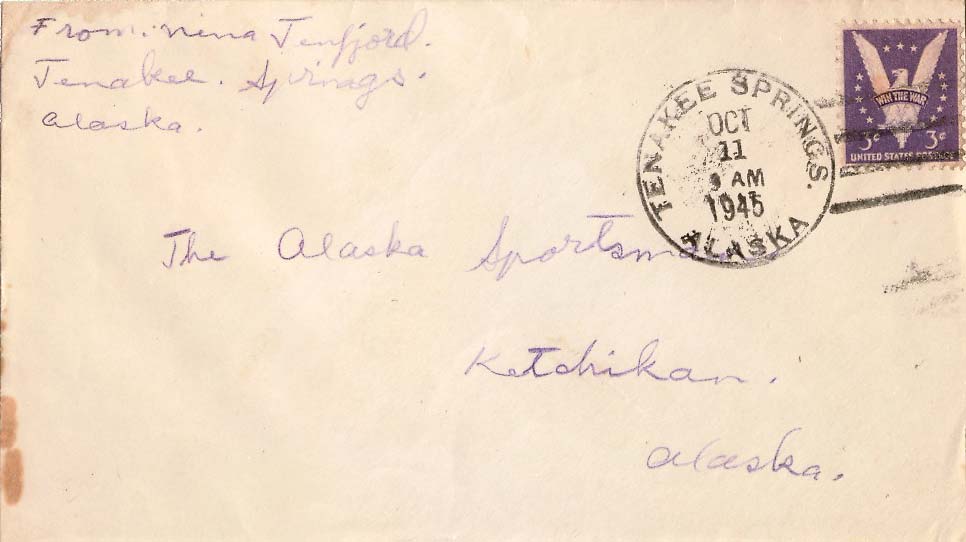 From: Nina Tenfjord.
Tenakee. Springs.
Alaska.
TENAKEE SPRINGS.
OCT
11
9 AM
1945
ALASKA
WIN THE WAR
3¢ 3¢
UNITED STATES POSTAGE
The Alaska Sportsman
Ketchikan.
Alaska.